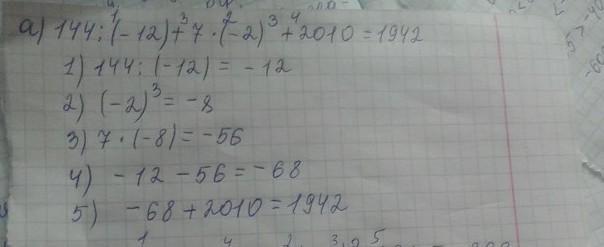 а) 144:(-12)+7·(-2)³+2010=1942
1) 144:(-12)= -12
2) (-2)³= -8
3) 7·(-8)= -56
4) -12-56= -68
5) -68+2010=1942